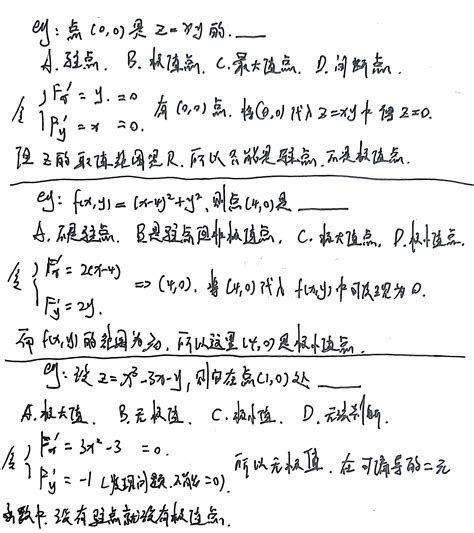 eg: 点(0,0)是 z=xy 的.____
A. 驻点. B. 极值点. C. 最大值点. D. 间断点.
令{Fx′ = y. =0 Fy′ = x =0. 有(0,0)点. 将(0,0)代入z=xy中得z=0.
但z的取值范围是R. 所以只能是驻点. 不是极值点.
eg: f(x,y) = (x-4)²+y², 则点(4,0)是____
A. 不是驻点. B 是驻点但非极值点. C. 极大值点. D. 极小值点.
令{Fx′ = 2(x-4) Fy′ = 2y. => (4,0). 将(4,0)代入f(x,y)中可发现为0.
而f(x,y)的范围为≥0. 所以这里(4,0)是极小值点.
eg: 设 z=x³-3x-y, 则在点(1,0)处____
A. 极大值. B. 无极值. C. 极小值. D. 无法判断.
令{Fx′ = 3x²-3 =0. Fy′ = -1 (发现问题. 不能=0). 所以无极值. 在可偏导的二元
函数中. 没有驻点就没有极值点.